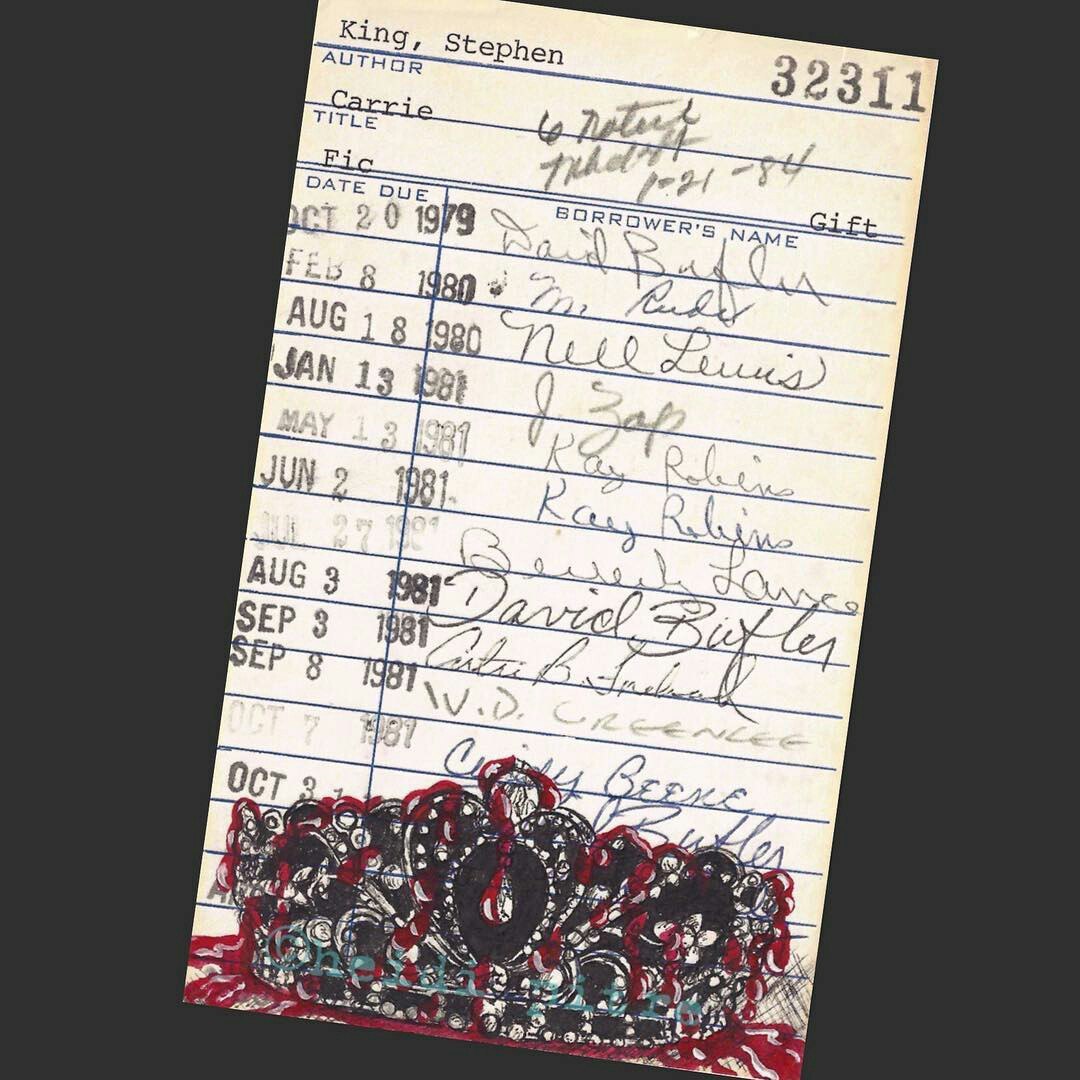 King, Stephen
32311
AUTHOR
Carrie
TITLE
6 noted
1-21-84
Fic
Gift
DATE DUE
BORROWER'S NAME
OCT 20 1979 David Butler
FEB 8 1980 M.
AUG 18 1980 Nell Lewis
JAN 13 1981 J. Zap
MAY 13 1981 Kay Robins
JUN 2 1981 Kay Robins
JUL 27 1981 Beverly Lance
AUG 3 1981 David Butler
SEP 3 1981 B.
SEP 8 1981 W.D. GREENLEE
OCT 7 1981 Cindy BEENE
OCT 3 Butler
©heidi nitro